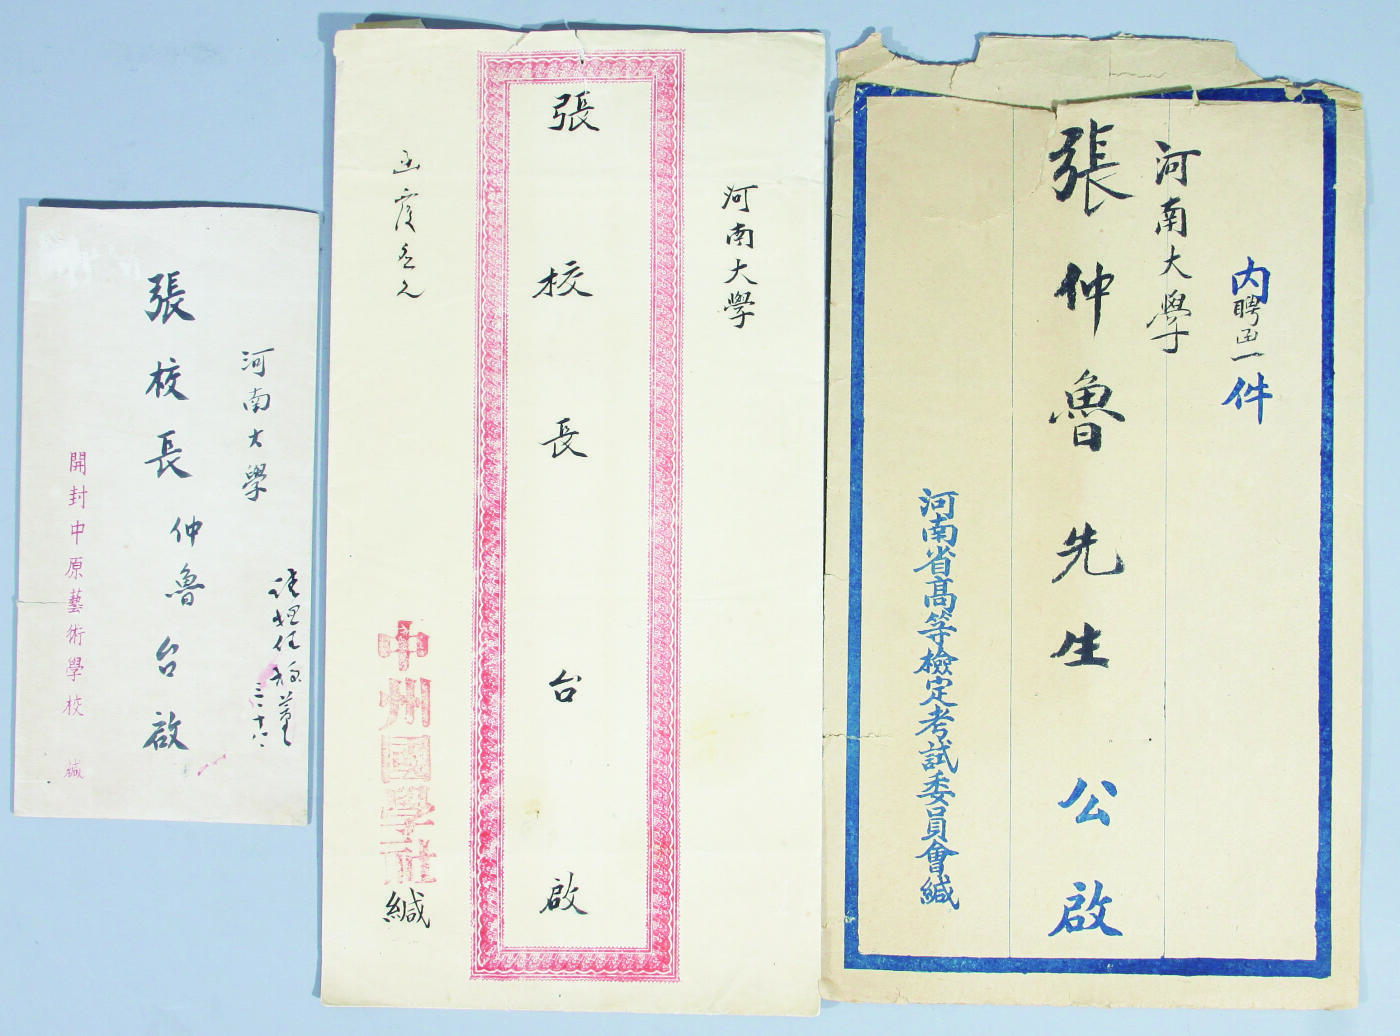 河南大學
張校長仲魯台啟
開封中原藝術學校 緘
河南大學
張校長台啟
中州國學社緘
内聘函一件
河南大學
張仲魯先生公啟
河南省高等檢定考試委員會緘